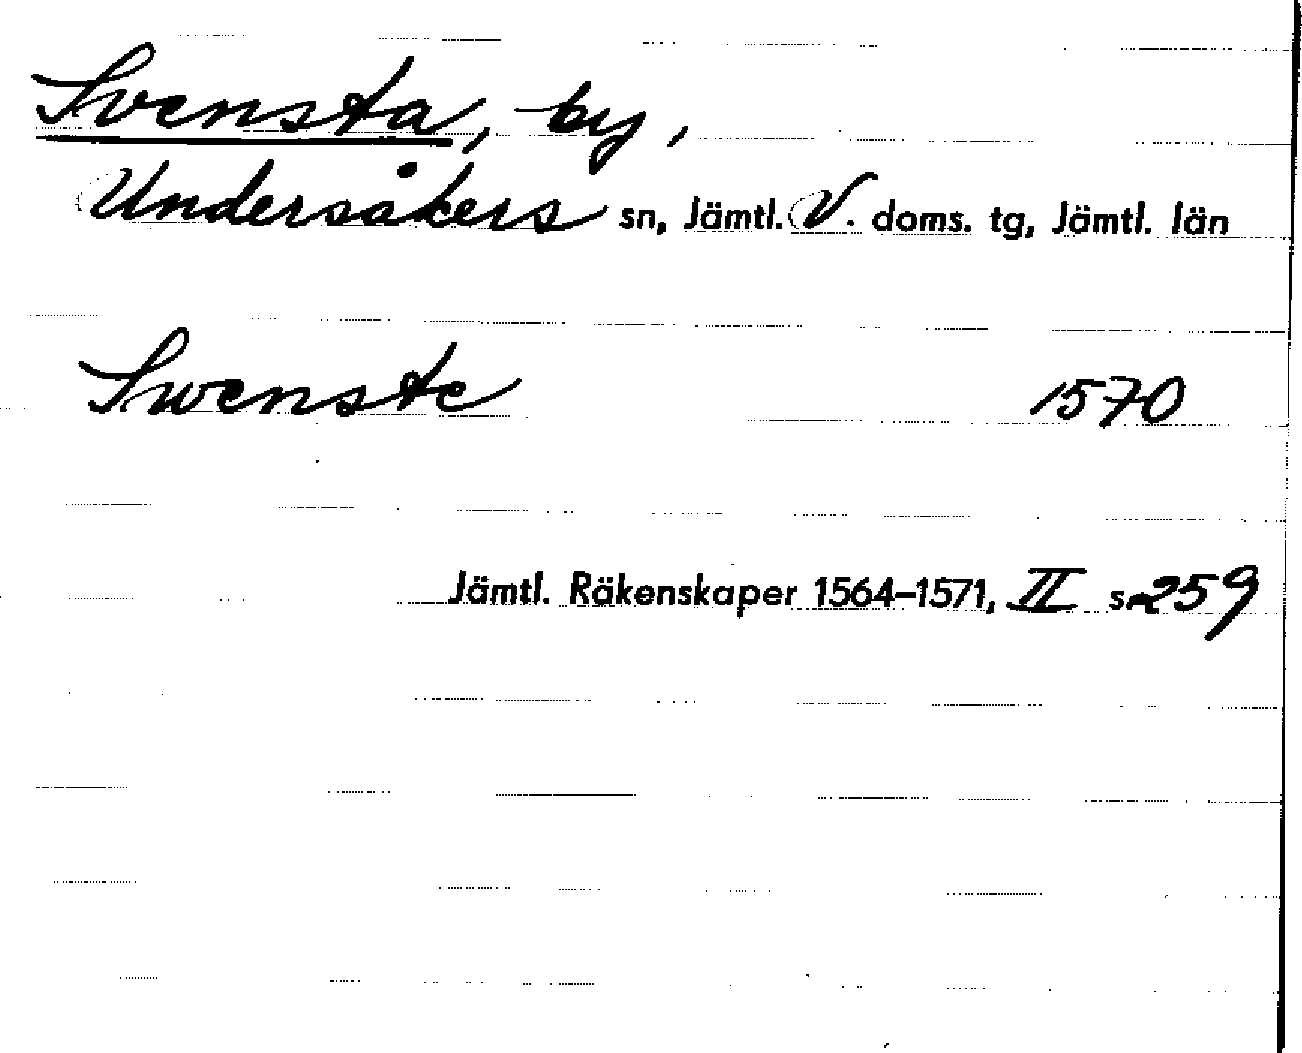 Svensta, by,
Undersåkers sn, Jämtl. V. doms. tg, Jämtl. län
Swenste 1570
Jämtl. Räkenskaper 1564–1571, II s. 259